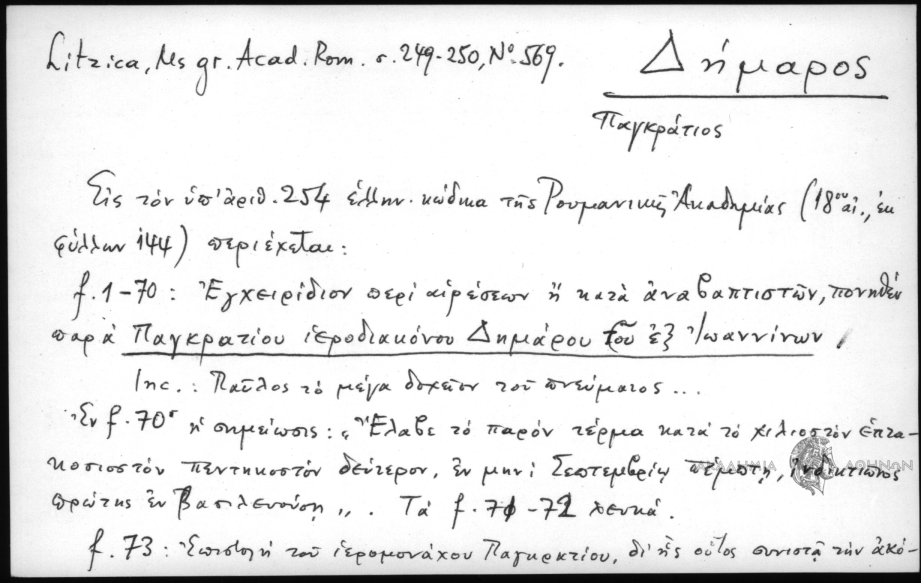 Litzica, Ms gr. Acad. Rom. σ. 249-250, Nº 569.
Δήμαρος
Παγκράτιος
Εἰς τὸν ὑπ' ἀριθ. 254 ἑλλην. κώδικα τῆς Ρουμανικῆς Ἀκαδημίας (18ου αἰ., ἐκ
φύλλων 144) περιέχεται:
f. 1-70: Ἐγχειρίδιον περὶ αἱρέσεων ἢ κατὰ ἀναβαπτιστῶν, πονηθὲν
παρὰ Παγκρατίου ἱεροδιακόνου Δημάρου τοῦ ἐξ Ἰωαννίνων
Inc.: Παῦλος τὸ μέγα δοχεῖον τοῦ πνεύματος ...
Ἐν f. 70r ἡ σημείωσις: „Ἔλαβε τὸ παρὸν τέρμα κατὰ τὸ χιλιοστὸν ἑπτα-
κοσιοστὸν πεντηκοστὸν δεύτερον, ἐν μηνὶ Σεπτεμβρίῳ πέμπτῃ, ἰνδικτιῶνος
πρώτης ἐν Βασιλευούσῃ„. Τὰ f. 71-72 λευκά.
f. 73: Ἐπιστολὴ τοῦ ἱερομονάχου Παγκρατίου, δι' ἧς οὗτος συνιστᾷ τὴν ἀκό-
ΑΚΑΔΗΜΙΑ ΑΘΗΝΩΝ